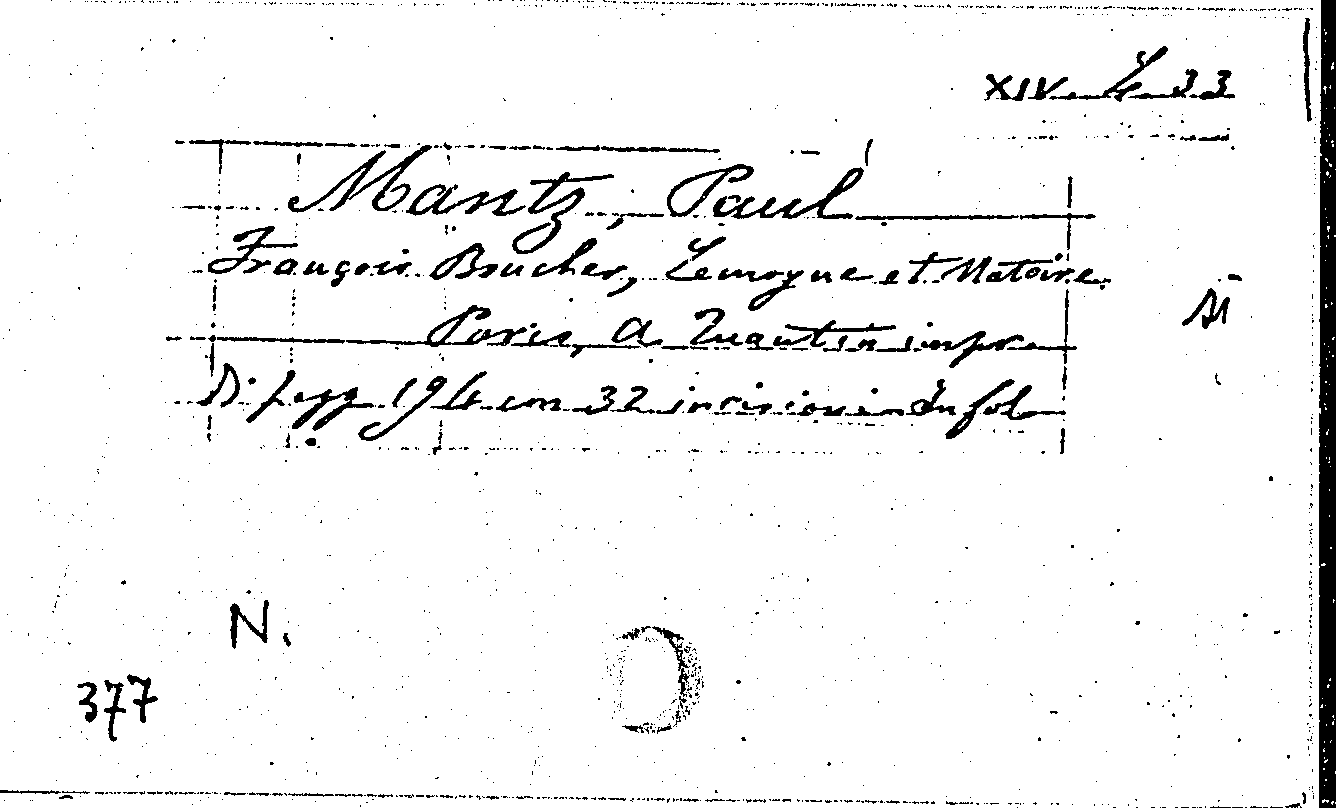 XIV. L. 33
Mantz, Paul
François Boucher, Lemoyne et Natoire.
Paris, A Quantin impr.
Di pagg 194 con 32 incisioni in fol
N.
377